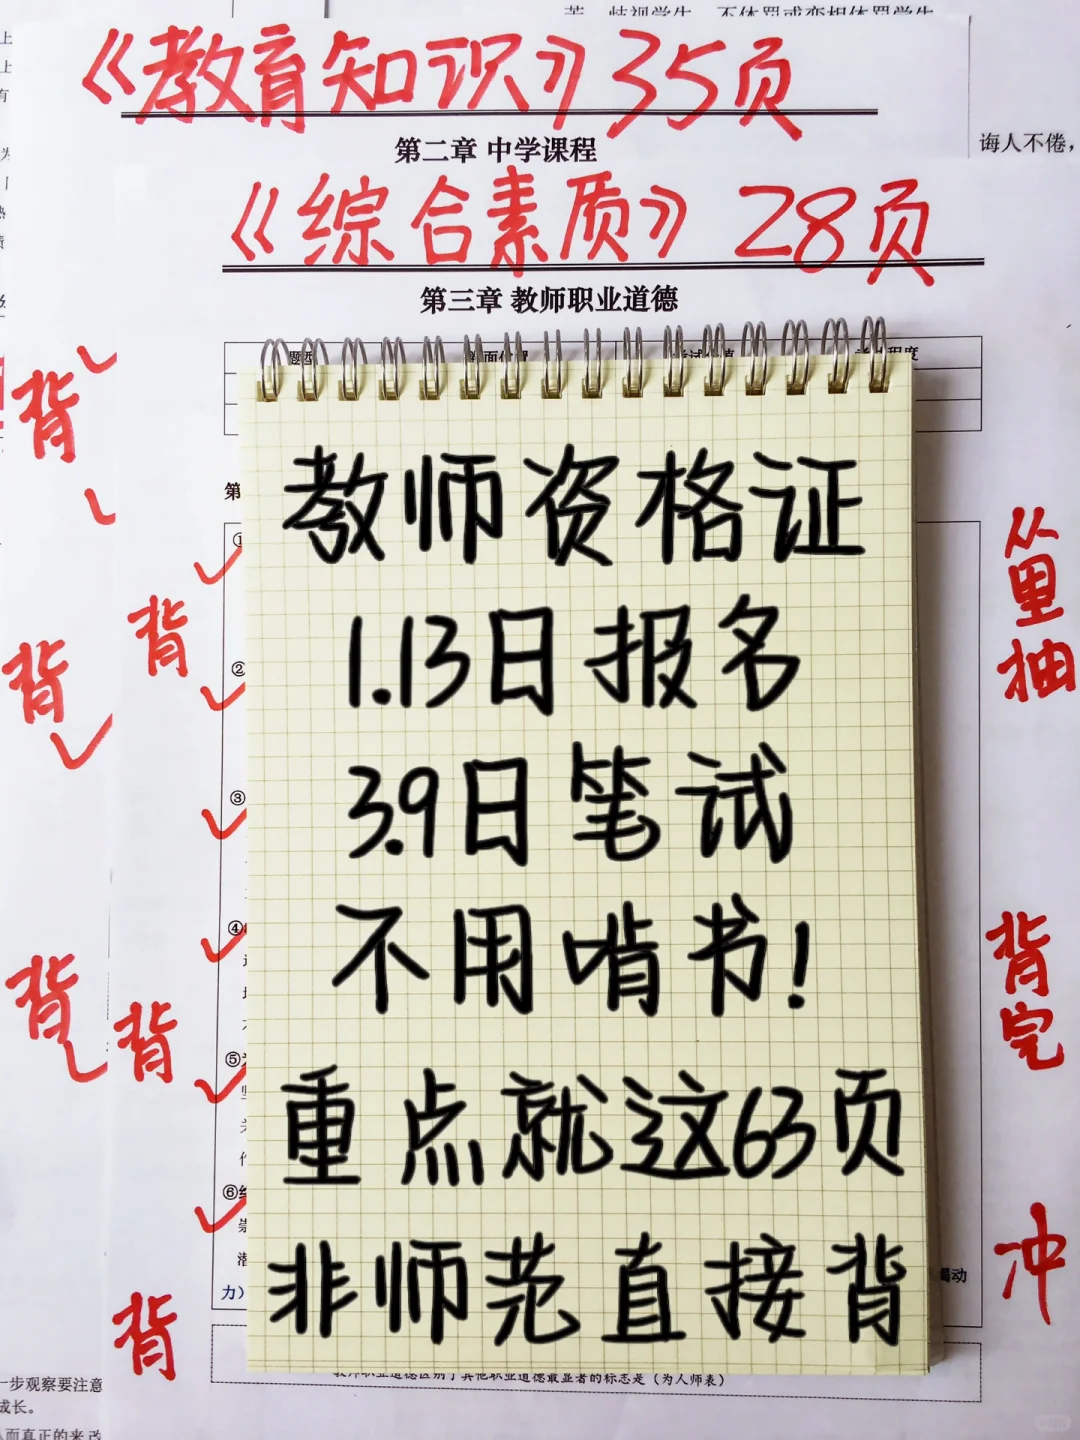 苦、歧视学生、不体罚或变相体罚学生
《教育知识》35页
诲人不倦，
第二章 中学课程
《综合素质》28页
第三章 教师职业道德
背
背
背
背
背
背
第
①
②
③
④
⑤
⑥
教师资格证
1.13日报名
3.9日笔试
不用啃书！
重点就这63页
非师范直接背
从里抽
背完
冲
力）
一步观察要注意
成长。
教师职业道德区别于其他职业道德最显著的标志是（为人师表）